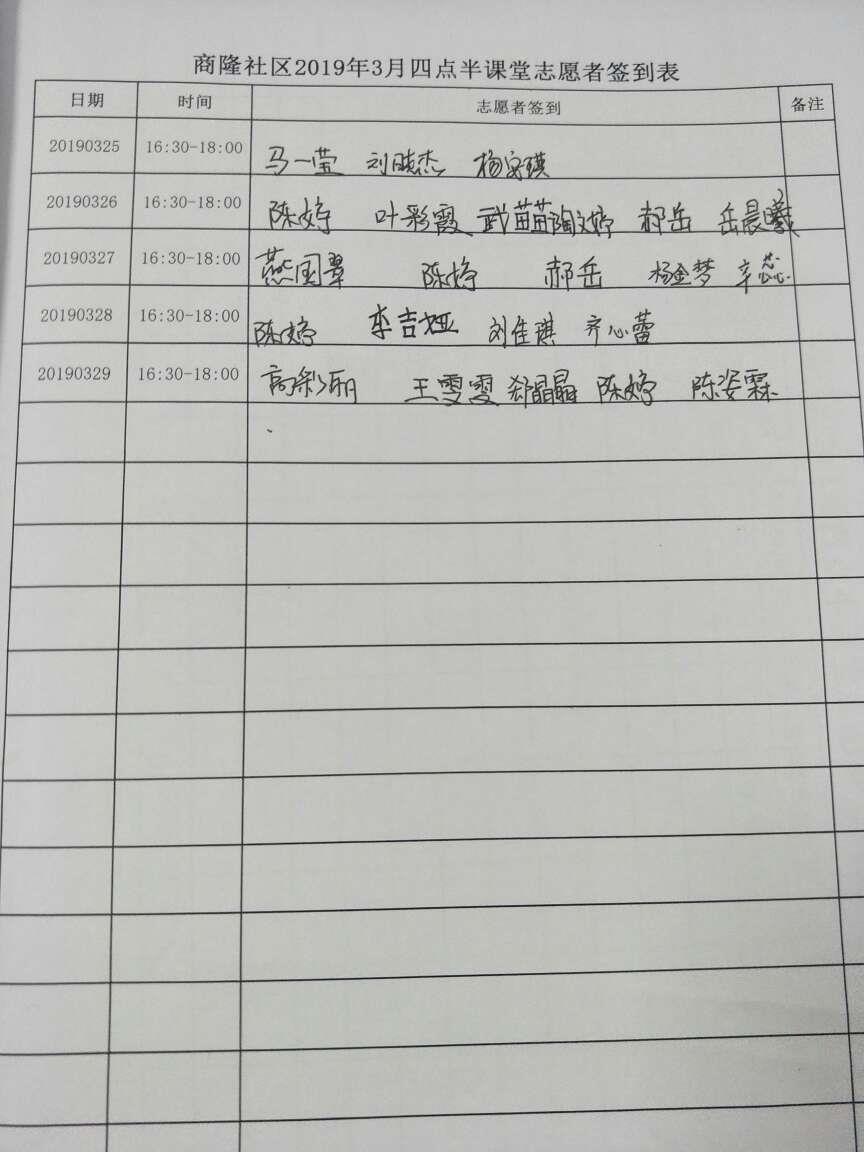 商隆社区2019年3月四点半课堂志愿者签到表
日期 时间 志愿者签到 备注
20190325 16:30-18:00 马一莹 刘晓杰 杨安琪
20190326 16:30-18:00 陈婷 叶彩霞 武苗苗 陶文婷 郝岳 岳晨曦
20190327 16:30-18:00 燕国翠 陈婷 郝岳 杨金梦 辛蕊
20190328 16:30-18:00 陈婷 李吉娅 刘佳琪 齐心蕾
20190329 16:30-18:00 高彩丽 王雯雯 郄晶晶 陈婷 陈姿霖